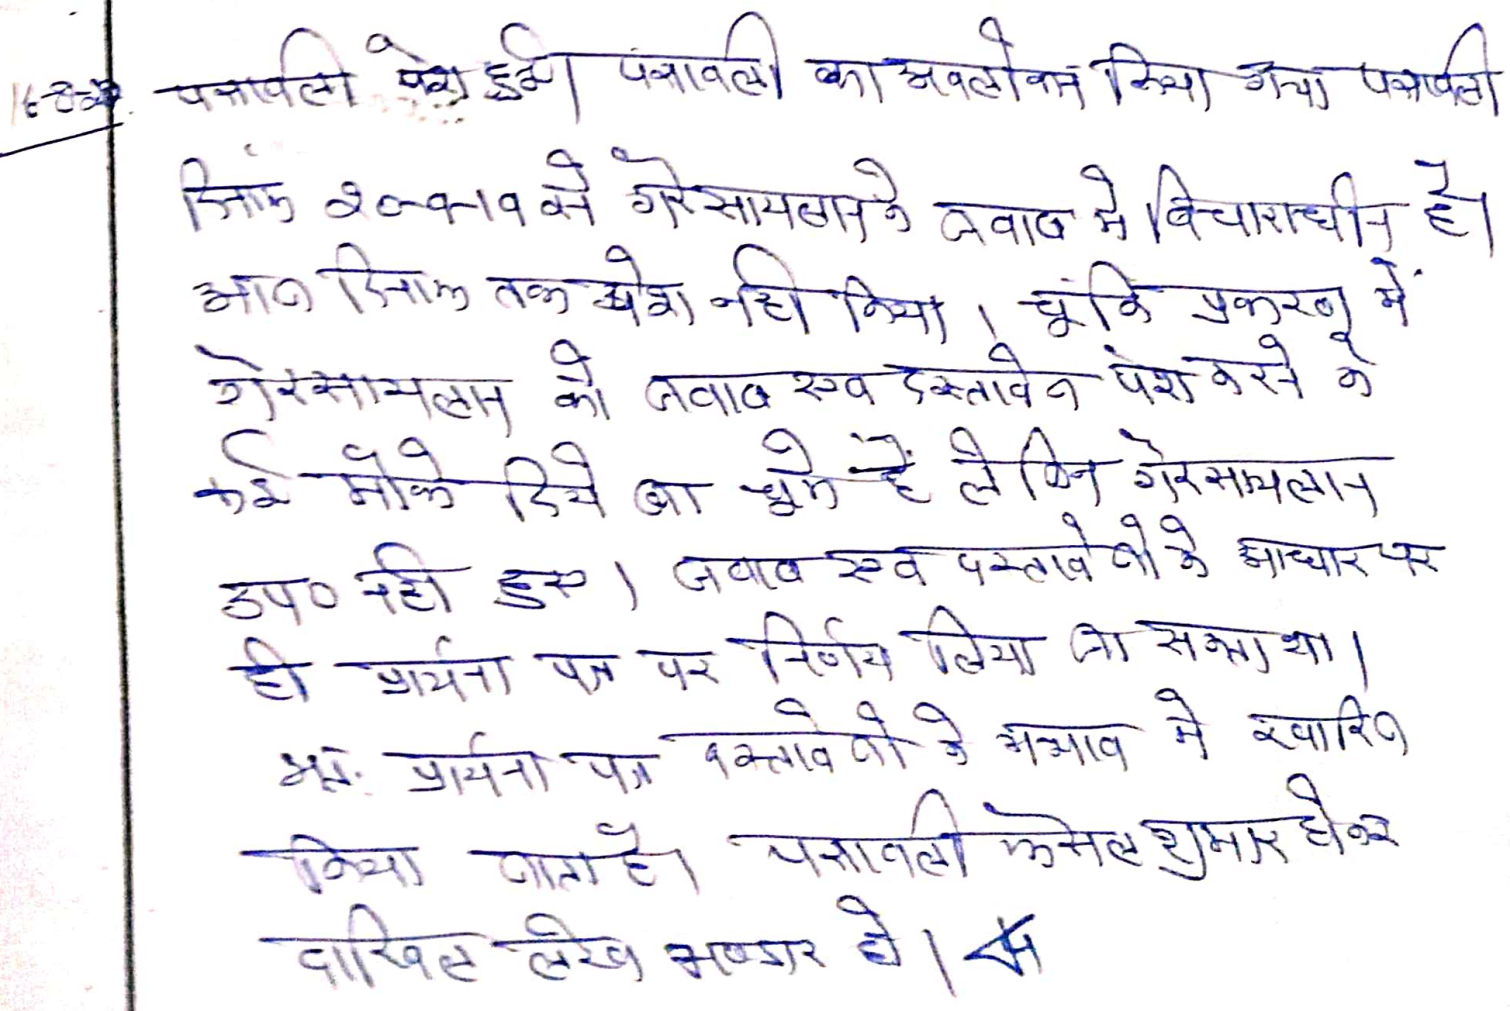 पत्रावली पेश हुई। पत्रावली का अवलोकन किया गया पत्रावली
दिनांक से गैरसायलान के जवाब मे विचाराधीन है।
आज दिनांक तक पेश नही किया। चूंकि प्रकरण में
गैरसायलान को जवाब एवं दस्तावेज पेश करने के
कई मौके दिये जा चुके हैं लेकिन गैरसायलान
उप० नही हुए। जवाब एवं दस्तावेजो के आधार पर
ही प्रार्थना पत्र पर निर्णय लिया जा सकता था।
अतः प्रार्थना पत्र दस्तावेजो के अभाव मे खारिज
किया जाता है। पत्रावली फैसल शुमार होकर
दाखिल लेख भण्डार हो।